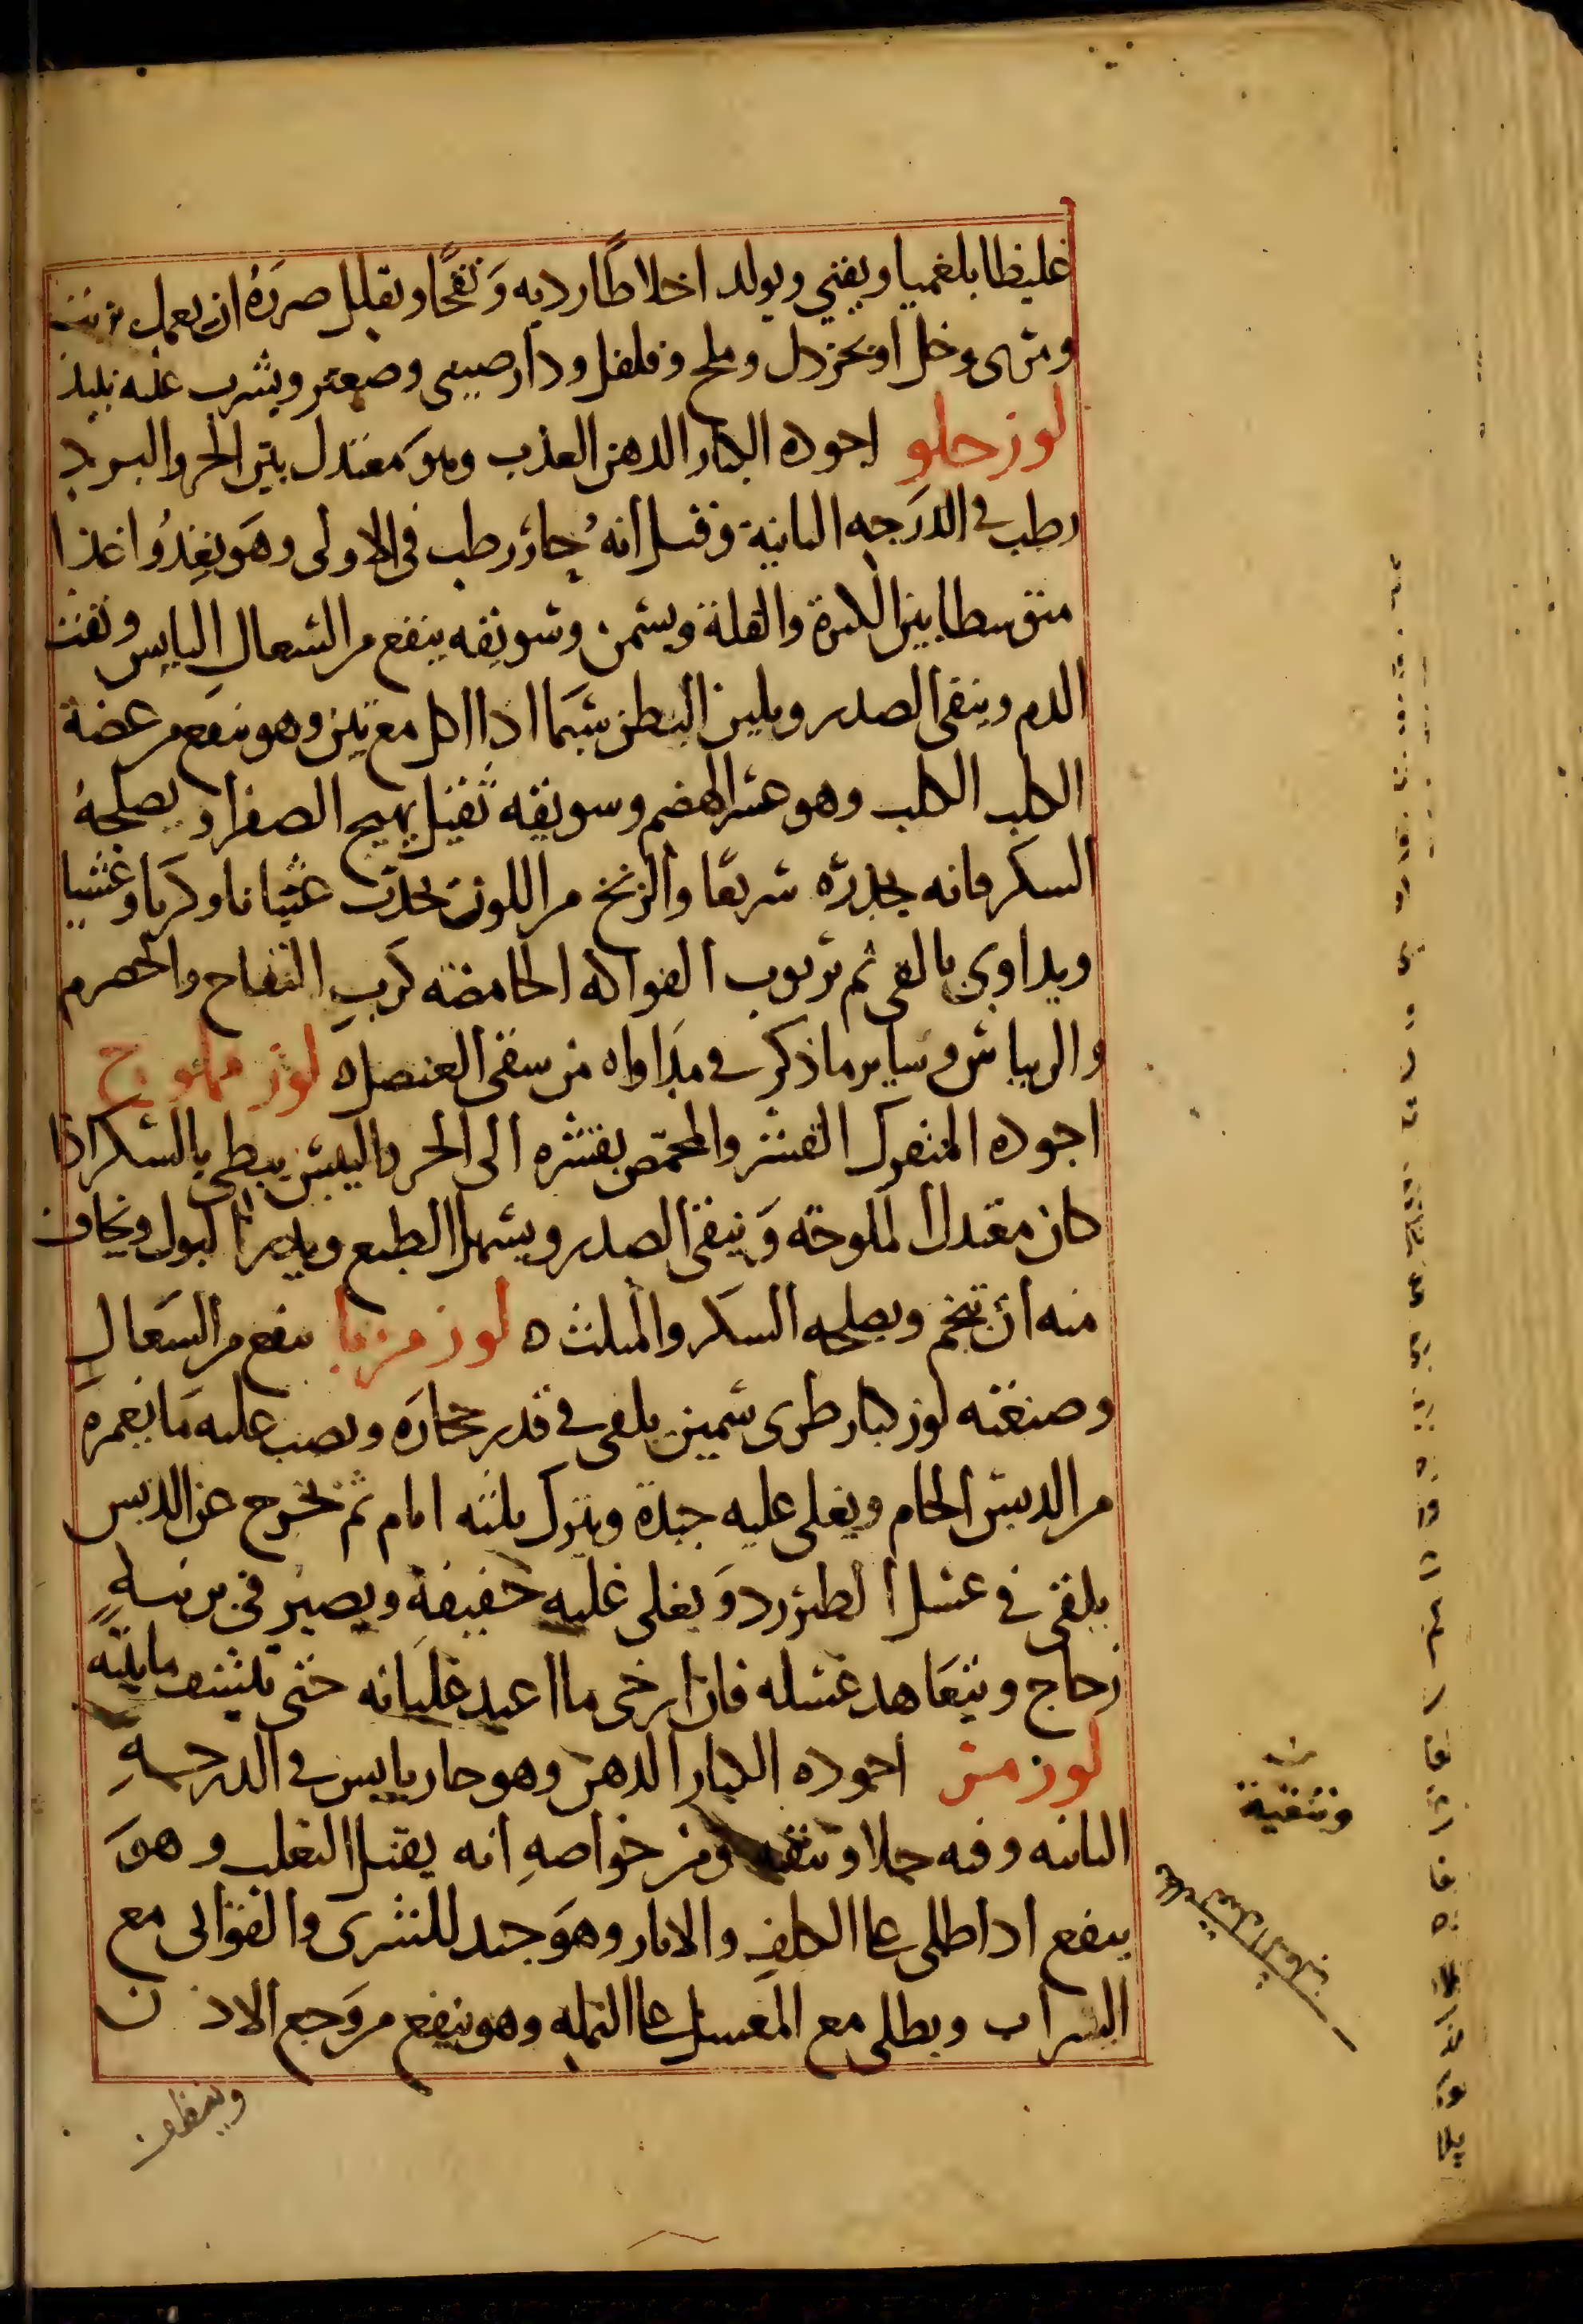 غليظا بلغميا ويغثي ويولد اخلاطًا رديه وَنفخًا ويقلل ضررَهُ ان يعمل بزيت
ومرى وخل او بخردل وملح وفلفل ودارصيني وصعتر ويشرب عليه نبيذ
لوز حلو اجوده الكبار الدهن العذب وهوَ معتدل بين الحر والبرد
رطب في الدرَجه الثانية وقيل انهُ حار رطب في الاولى وهَو يغذُوا غذا
متوسطا بين الكثرة والقلة ويسمن وسويقه ينفع من السعالِ اليابس ونفث
الدم وينقي الصدر ويلين البطن سيَما اذا اكل مع تين وهو ينفع من عضة
الكلب الكلب وهو عسر الهضم وسويقه ثقيل يهيج الصفراء ويصلحهُ
السكر فانه يحدره سريعًا والزنخ من اللوز يحدث غثيانا وكربًا وغشيا
ويداوى بالقي ثم بربوب الفواكه الحامضه كربِ التفاح والحصرم
والريباس وساير ما ذكر في مدَاواه من سقى العنصل ه لوز مملوح
اجوده المفرك القشر والمحمّص بقشره الى الحر واليبس يبطي بالسكر اذا
كان معتدل الملوحة وَينقي الصدر ويسهل الطبع ويدر البول ويخاف
منه ان يتخم ويصلحه السكر والمثلث ه لوز مربا ينفع من السَعالِ
وصنعته لوز كبار طرى سمين يلقى في قدر حجارَه ويصب عليه مَا يغمره
من الدبس الخام ويغلى عليه جيدة ويترك ثلثه ايام ثم يخرج عن الدبس
يلقى في عسل الطبرزد وَيغلى غليه خفيفه ويصير في برنيهٍ
زجاج ويتعَاهد عسله فان ارخى ما اعيد غليَانه حتى تنشف مائيته
لوز مر اجوده الكبار الدهن وهو حار يابس في الدرجهِ
الثانيه وفيه جلا وتنقيه ومن خواصهِ انه يقتل الثعلب وهوَ
ينفع اذا طلى على الكلفِ والاثار وهوَ جيد للشرى والقوابى مع
الشراب ويطلى مع العسل على النمله وهو ينفع من وَجع الاذن
وتنقية
وينظف